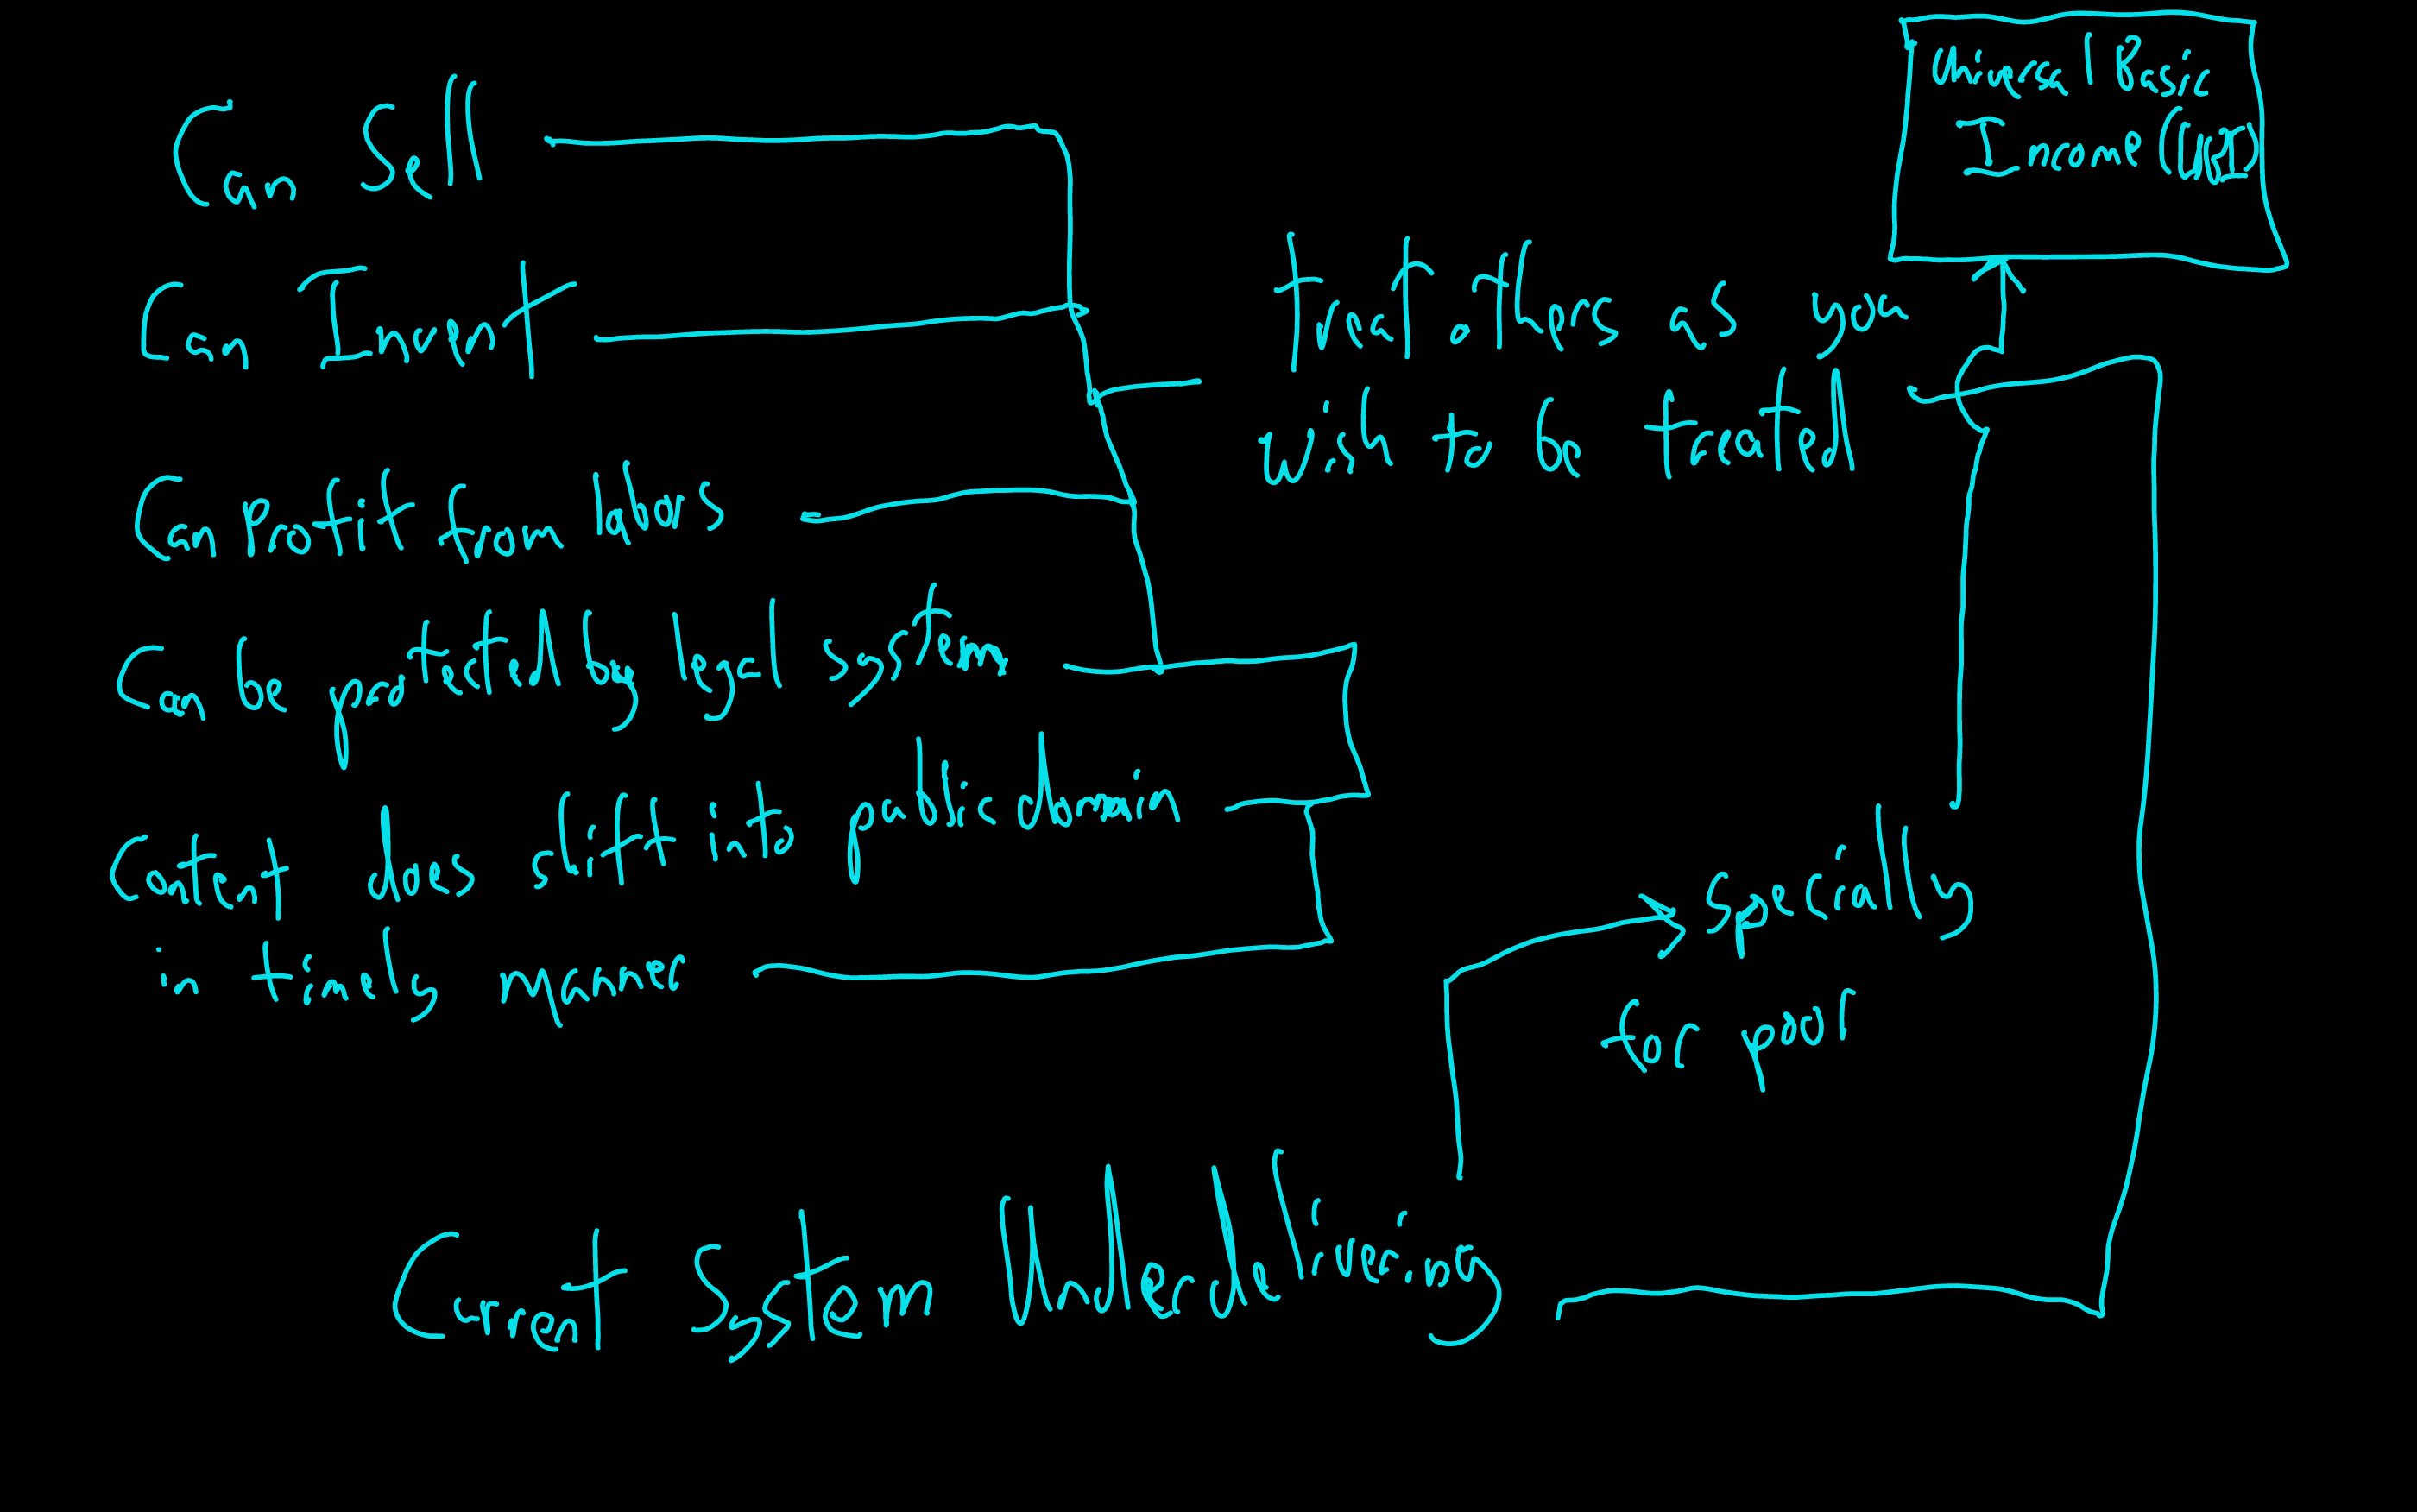 Can Sell
Can Invent
Can Profit from labors
Can be protected by legal system
Content does shift into public domain
in timely manner
Universal Basic
Income (UBI)
treat others as you
wish to be treated
specially
for poor
Current System Underdelivering